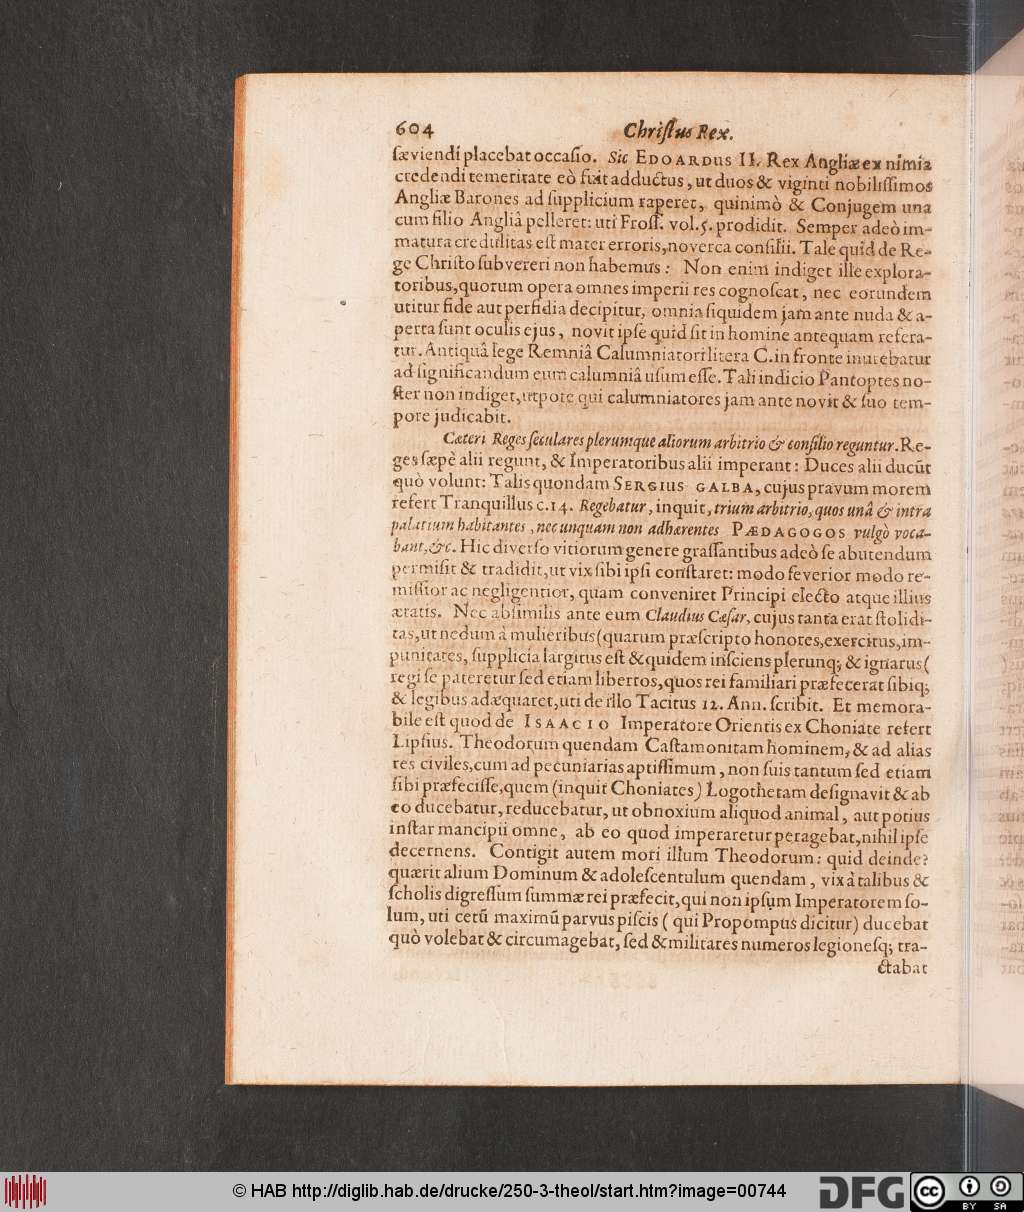 604 Chriſtus Rex.
ſæviendi placebat occaſio. Sic EDOARDUS II. Rex Angliæ ex nimia
credendi temeritate eò fuit adductus, ut duos & viginti nobiliſſimos
Angliæ Barones ad ſupplicium raperet, quinimò & Conjugem una
cum filio Angliâ pelleret: uti Froſſ. vol. 5. prodidit. Semper adeò im-
matura credulitas eſt mater erroris, noverca conſilii. Tale quid de Re-
ge Chriſto ſubvereri non habemus: Non enim indiget ille explora-
toribus, quorum opera omnes imperii res cognoſcat, nec eorundem
utitur fide aut perfidia decipitur, omnia ſiquidem jam ante nuda & a-
perta ſunt oculis ejus, novit ipſe quid ſit in homine antequam refera-
tur. Antiquâ lege Remniâ Calumniatori litera C. in fronte inurebatur
ad ſignificandum eum calumniâ uſum eſſe. Tali indicio Pantoptes no-
ſter non indiget, utpote qui calumniatores jam ante novit & ſuo tem-
pore judicabit.
Cæteri Reges ſeculares plerumque aliorum arbitrio & conſilio reguntur. Re-
ges ſæpè alii regunt, & Imperatoribus alii imperant: Duces alii ducūt
quò volunt: Talis quondam SERGIUS GALBA, cujus pravum morem
refert Tranquillus c. 14. Regebatur, inquit, trium arbitrio, quos unâ & intra
palatium habitantes, nec unquam non adhærentes PÆDAGOGOS vulgò voca-
bant, &c. Hic diverſo vitiorum genere graſſantibus adeò ſe abutendum
permiſit & tradidit, ut vix ſibi ipſi conſtaret: modo ſeverior modo re-
miſſior ac negligentior, quam conveniret Principi electo atque illius
ætatis. Nec abſimilis ante eum Claudius Cæſar, cujus tanta erat ſtolidi-
tas, ut nedum à mulieribus (quarum præſcripto honores, exercitus, im-
punitates, ſupplicia largitus eſt & quidem inſciens plerunq; & ignarus (
regi ſe pateretur ſed etiam libertos, quos rei familiari præfecerat ſibiq;
& legibus adæquaret, uti de illo Tacitus 12. Ann. ſcribit. Et memora-
bile eſt quod de ISAACIO Imperatore Orientis ex Choniate refert
Lipſius. Theodorum quendam Caſtamonitam hominem, & ad alias
res civiles, cum ad pecuniarias aptiſſimum, non ſuis tantum ſed etiam
ſibi præfeciſſe, quem (inquit Choniates) Logothetam deſignavit & ab
eo ducebatur, reducebatur, ut obnoxium aliquod animal, aut potius
inſtar mancipii omne, ab eo quod imperaretur peragebat, nihil ipſe
decernens. Contigit autem mori illum Theodorum: quid deinde?
quærit alium Dominum & adoleſcentulum quendam, vix à talibus &
ſcholis digreſſum ſummæ rei præfecit, qui non ipſum Imperatorem ſo-
lum, uti cetū maximū parvus piſcis ( qui Propompus dicitur) ducebat
quò volebat & circumagebat, ſed & militares numeros legioneſq; tra-
ctabat
© HAB http://diglib.hab.de/drucke/250-3-theol/start.htm?image=00744
DFG
cc
BY SA